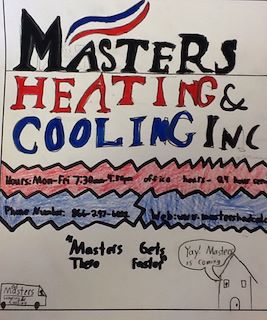 MASTERS
HEATING &
COOLING INC
Hours: Mon-Fri 7:30am-4:30pm office hours - 24 hour
Phone Number: 866-
Web: www.
"Masters Gets
There Faster"
Yay! Masters
is coming
Masters